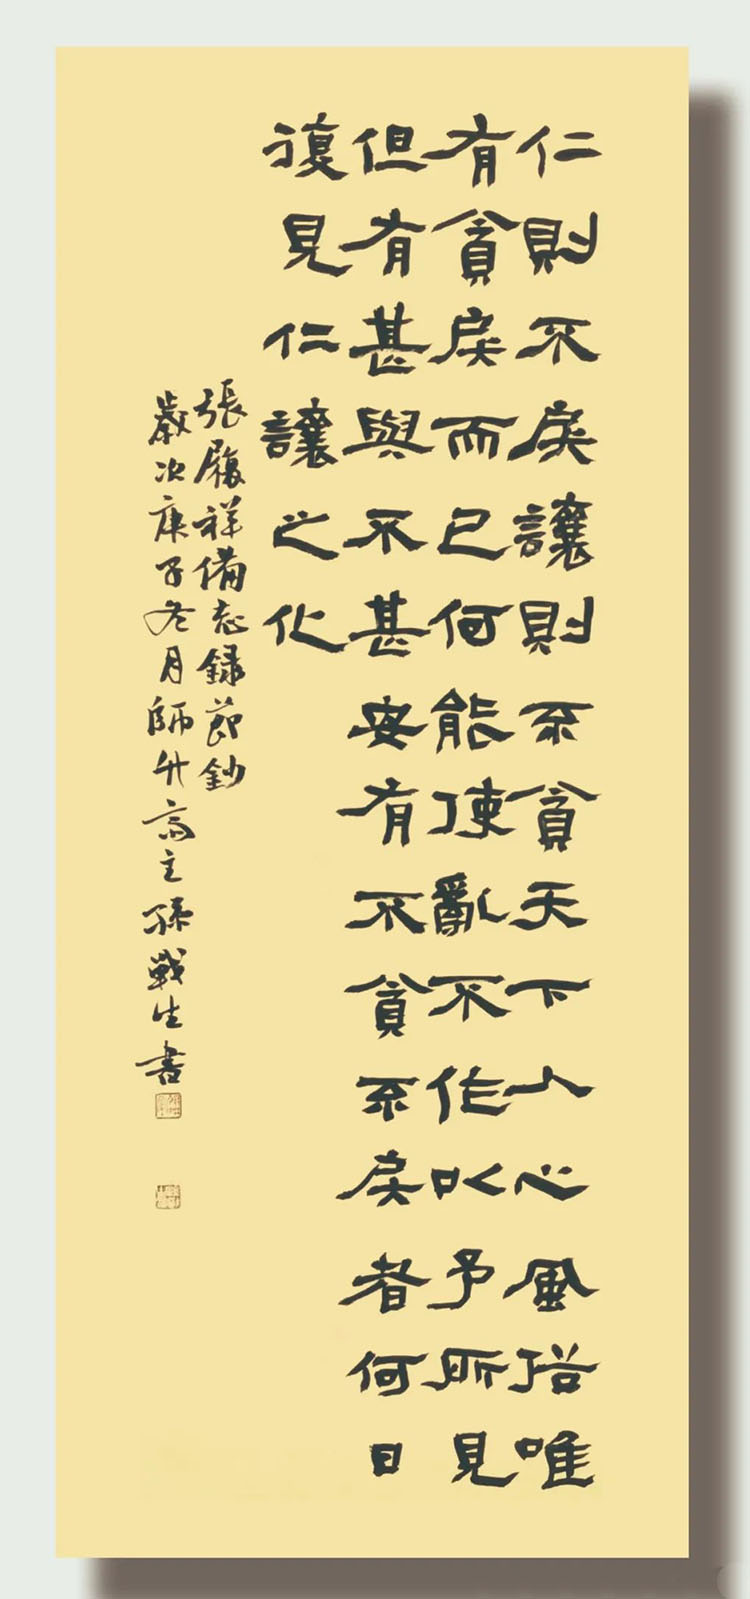 仁則不戾讓則不貪天下人心風俗唯
有貪戾而已何能使亂不作以予所見
但有甚與不甚安有不貪不戾者何日
復見仁讓之化
張履祥備忘録節鈔
歲次庚子冬月師竹齋主孫戰生書